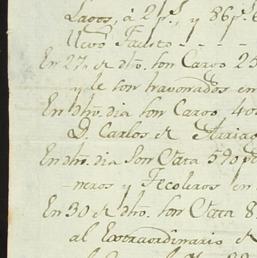 Lagos, á 2 p.s, y 86 p.s
Nuevo Fausto - - - -
En 27,, de dho. son Cargo 25
y le son travonados en
En dho. dia son Cargo, 400
D. Carlos de Arriag
En dho. dia Son Data 590 p
neros y Tecoleros en
En 30 de dho. son Data 8
al Extraordinario de